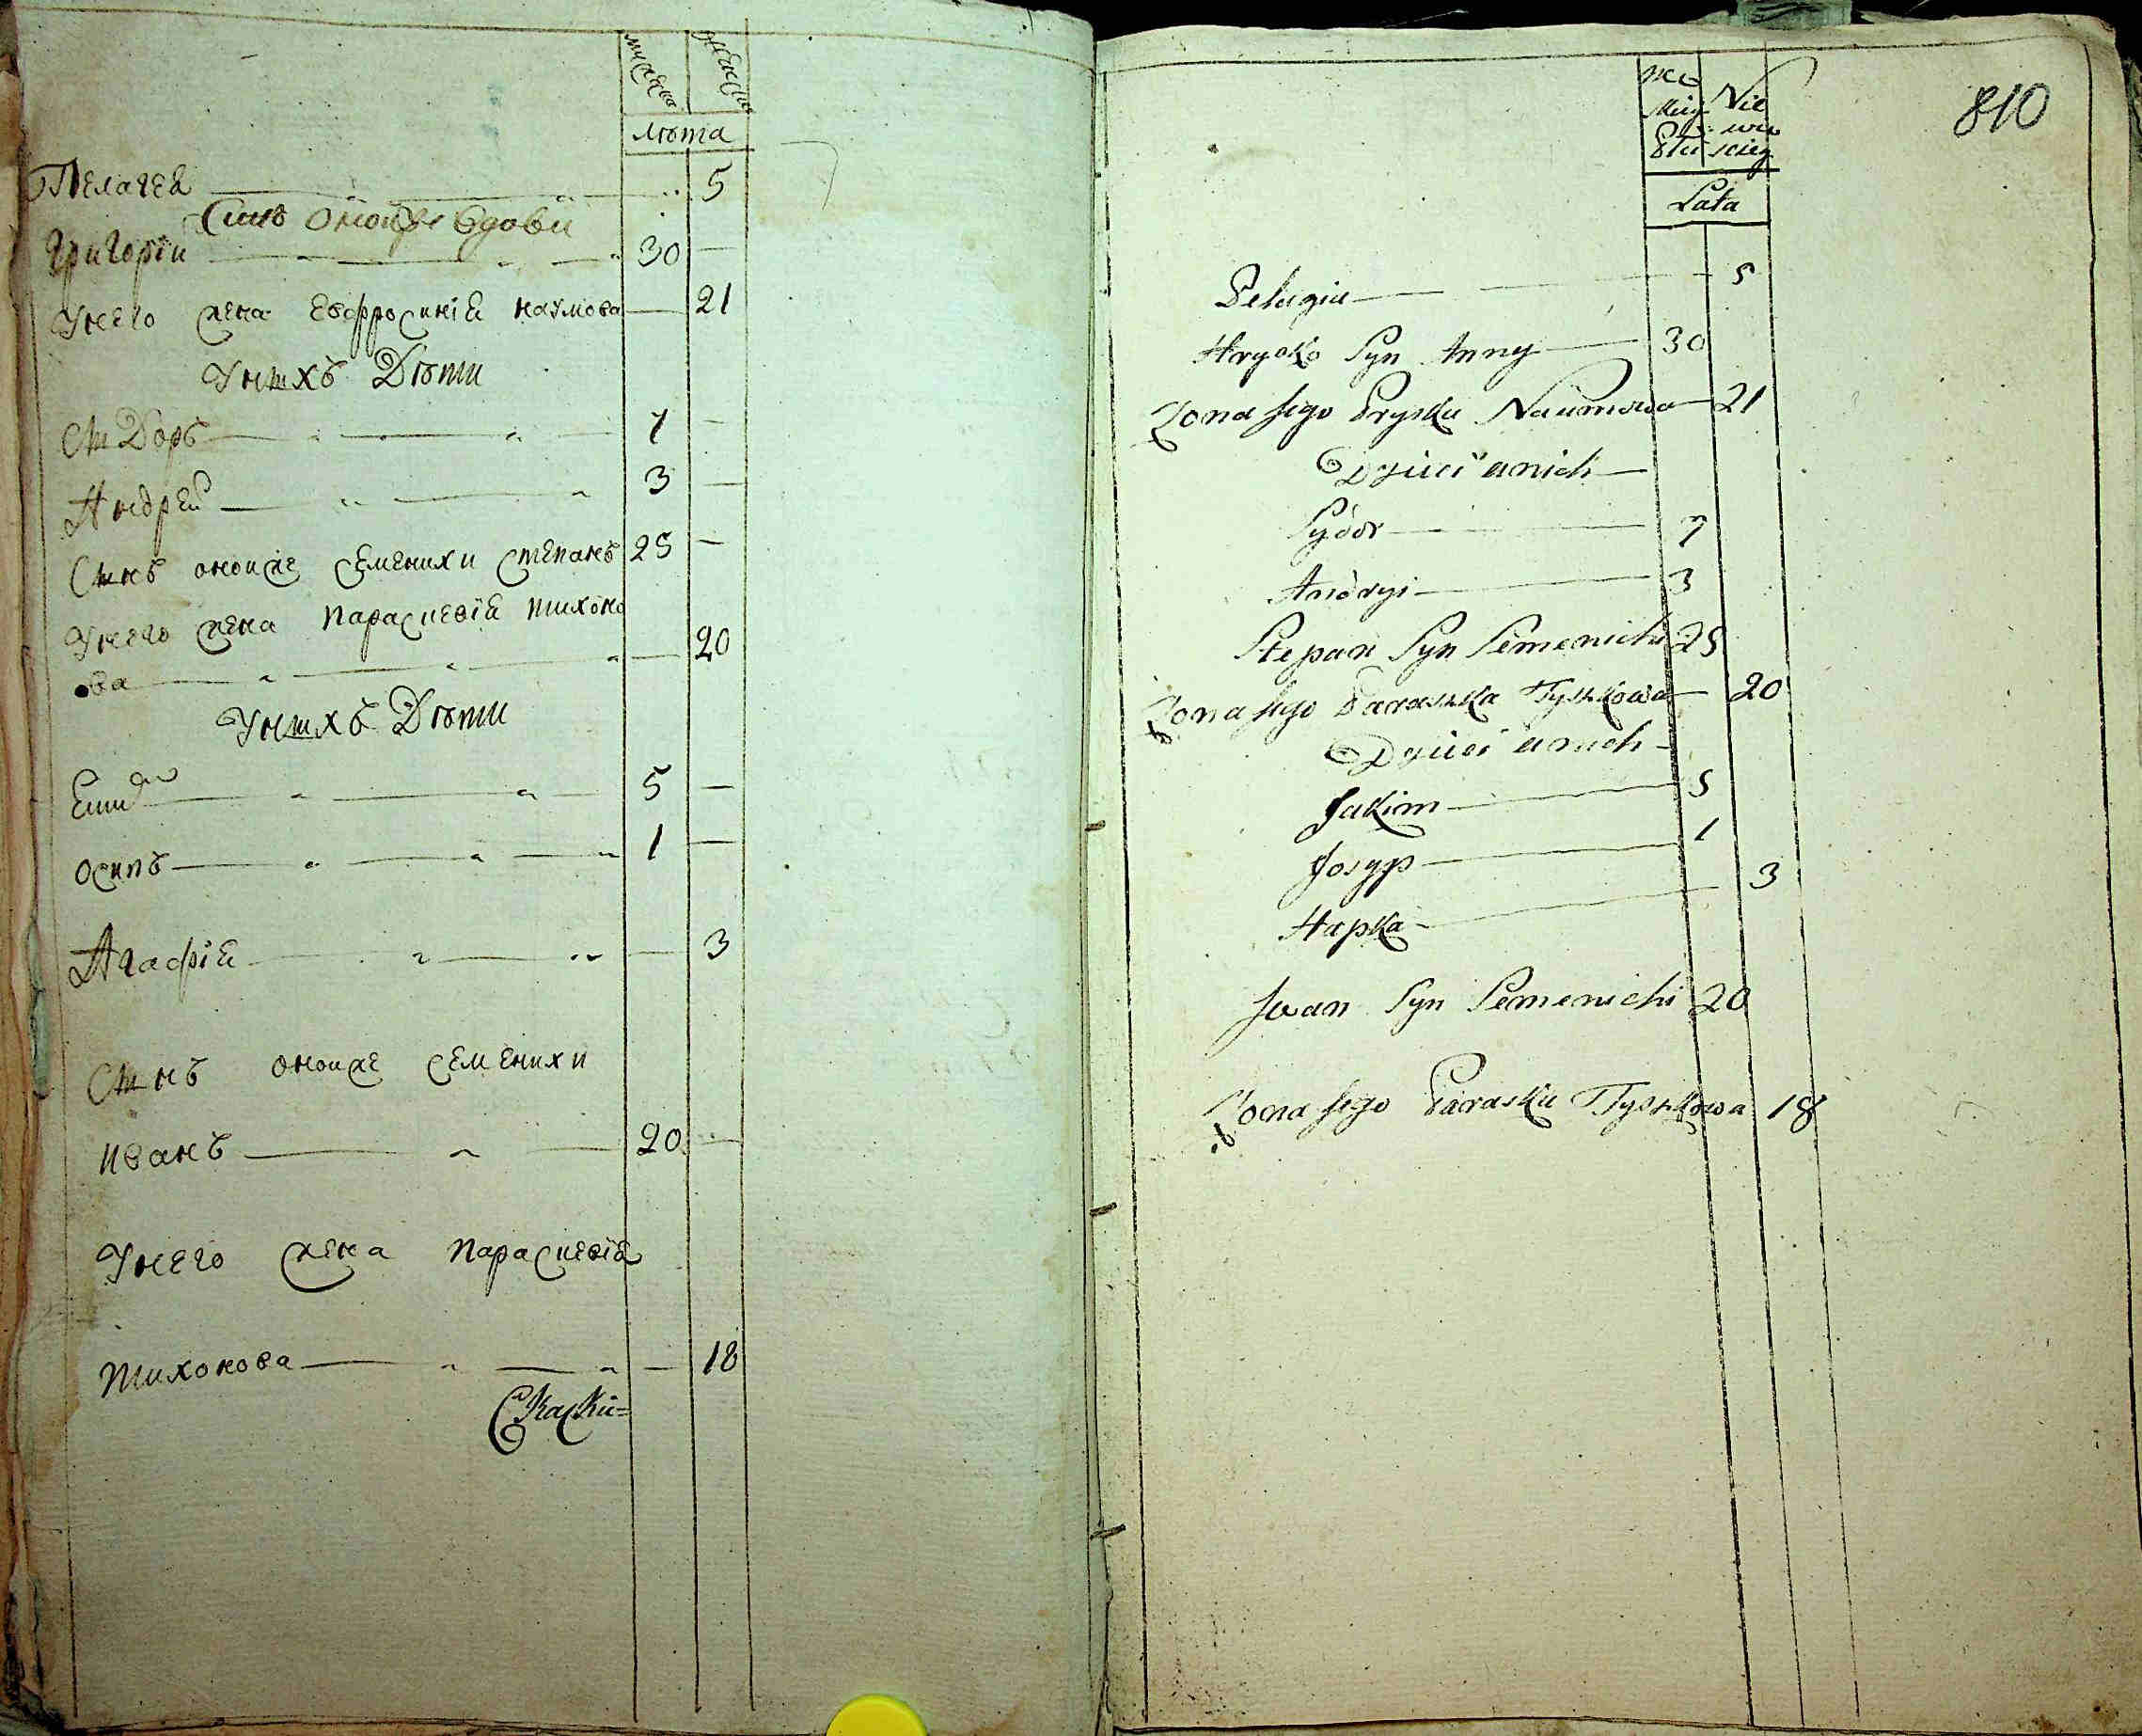 мужска женска
лѣта
Пелагея 5
Синъ оной же вдови
Григорїи 30 —
Унего жена Евфросинїя Наумова — 21
Унихъ Дѣти
Сидоръ 7 —
Андрей 3 —
Синъ оноиже Семенихи Степанъ 25 —
Унего жена Параскевїя Тихоно
ва — 20
Унихъ Дѣти
5 —
Осипъ 1 —
Агафїя — 3
Синъ оноиже Семенихи
Иванъ 20 —
Унего жена Параскевїя
Тихонова — 18
Скаски=
810
Lata
Pelagia 5
Hrycko Syn Anny 30
Zona jego Pryska Naumowa 21
Dzieci unich
Sydor 7
Andryi 3
Stepan Syn Semenichi 25
Zona jego Paraska Tyszkowa 20
Dzieci unich
Jakim 5
Josyp 1
Hapka 3
Jwan Syn Semenichi 20
Zona jego Paraska Tyszkowa 18